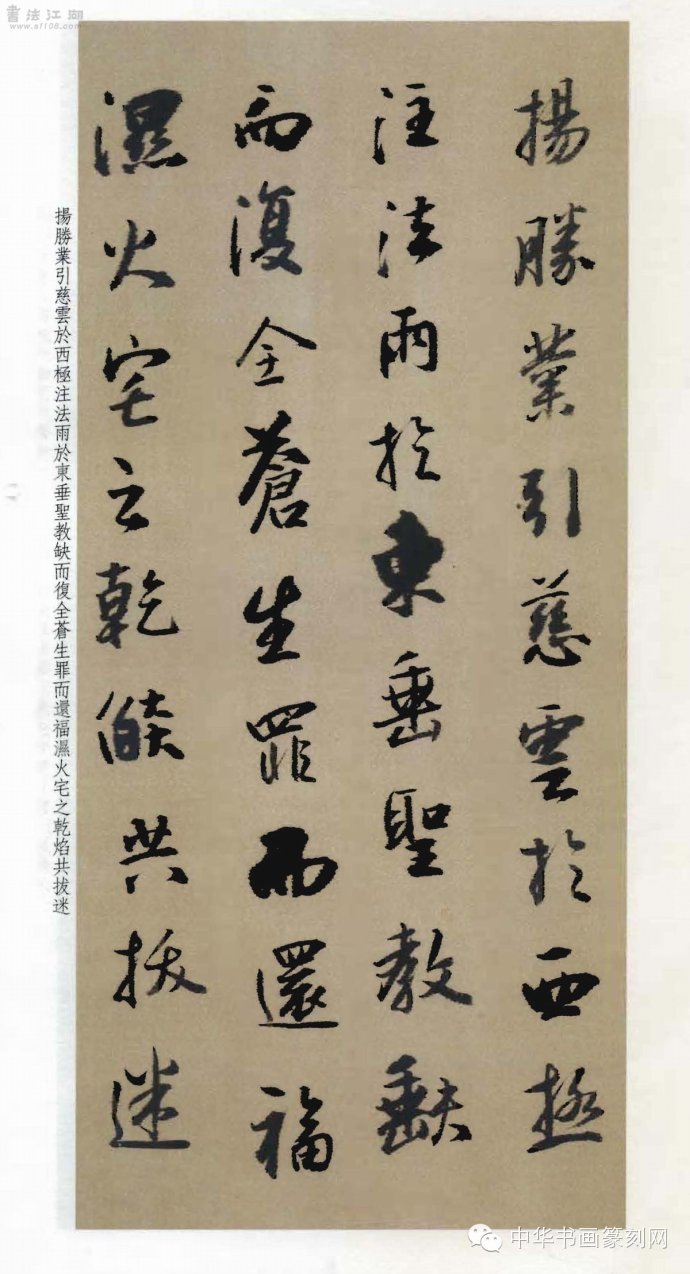 書法江湖
www.sf108.com
揚勝業引慈雲於西極
注法雨於東垂聖教缺
而復全蒼生罪而還福
濕火宅之乾焰共拔迷
揚勝業引慈雲於西極注法雨於東垂聖教缺而復全蒼生罪而還福濕火宅之乾焰共拔迷
中华书画篆刻网